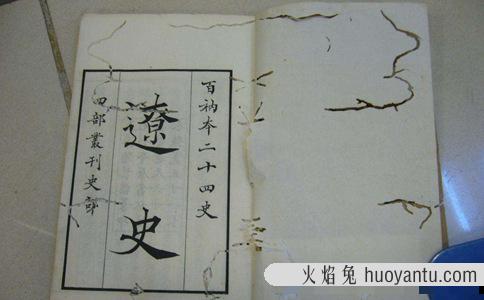 百衲本二十四史
遼史
四部叢刊史部
火焰兔 huoyantu.com